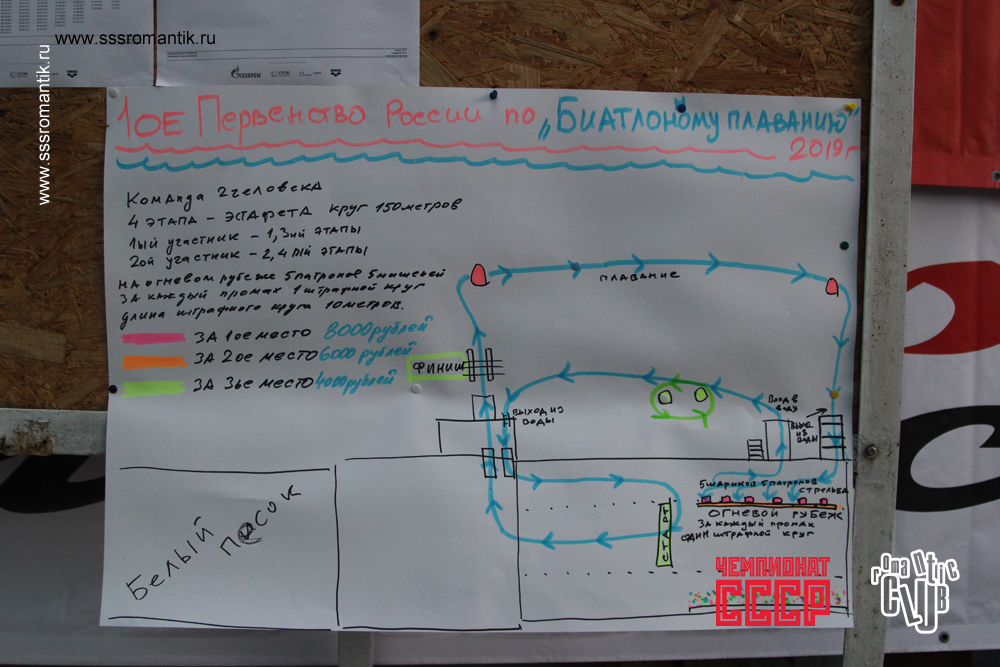 www.sssromantik.ru
www.sssromantik.ru
ГАЗПРОМ
arena
1ое Первенство России по „Биатлоному плаванию"
2019г
Команда 2 человека
4 этапа – эстафета круг 150 метров
1ый участник – 1,3ий этапы
2ой участник – 2,4ый этапы
на огневом рубеже 5 патронов 5 мишеней
за каждый промах 1 штрафной круг
длина штрафного круга 10 метров.
За 1ое место 8000 рублей
За 2ое место 6000 рублей
За 3ье место 4000 рублей
плавание
Финиш
Выход из воды
Вход в воду
Выход из воды
5 шариков 5 патронов
стрельба
огневой рубеж
за каждый промах
один штрафной круг
СТАРТ
Белый песок
ЧЕМПИОНАТ
СССР
romantic
CLUB